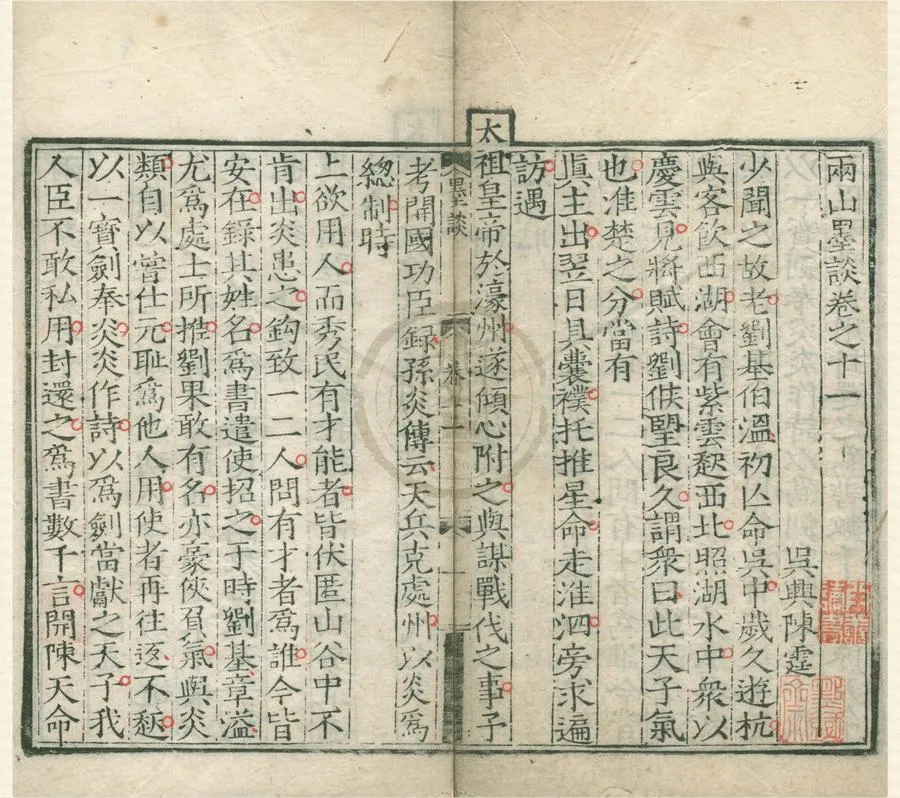 兩山墨談卷之十一
吳興陳霆
少聞之故老劉基伯溫初亾命吳中歲久遊杭
與客飲西湖會有紫雲起西北照湖水中衆以
慶雲見將賦詩劉佚朢良久謂衆曰此天子氣
也准楚之分當有
眞主出翌日具囊襆托推星命走淮泗旁求遍
訪遇
太祖皇帝於濠州遂傾心附之與謀戰伐之事子
墨談
卷十一
一
考開國功臣録孫炎傳云天兵克處州以炎爲
總制時
上欲用人而秀民有才能者皆伏匿山谷中不
肯出炎患之鈎致一二人問有才者爲誰今皆
安在錄其姓名爲書遣使招之于時劉基章溢
尤爲處士所推劉果敢有名亦豪俠負氣與炎
類自以嘗仕元耻爲他人用使者再往返不起
以一寳劍奉炎炎作詩以爲劍當獻之天子我
人臣不敢私用封還之爲書數千言開陳天命